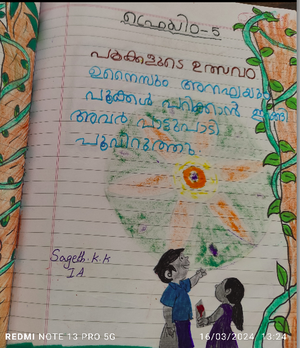 ഫ്രെയിം-5
പൂക്കളുടെ ഉത്സവം
ഉനൈസും അനഘയും
പൂക്കൾ പറിക്കാൻ ഇറങ്ങി
അവർ പാട്ടുപാടി
പൂവിറുത്തു
Sageth.k.k
I A
REDMI NOTE 13 PRO 5G
16/03/2024 13:24